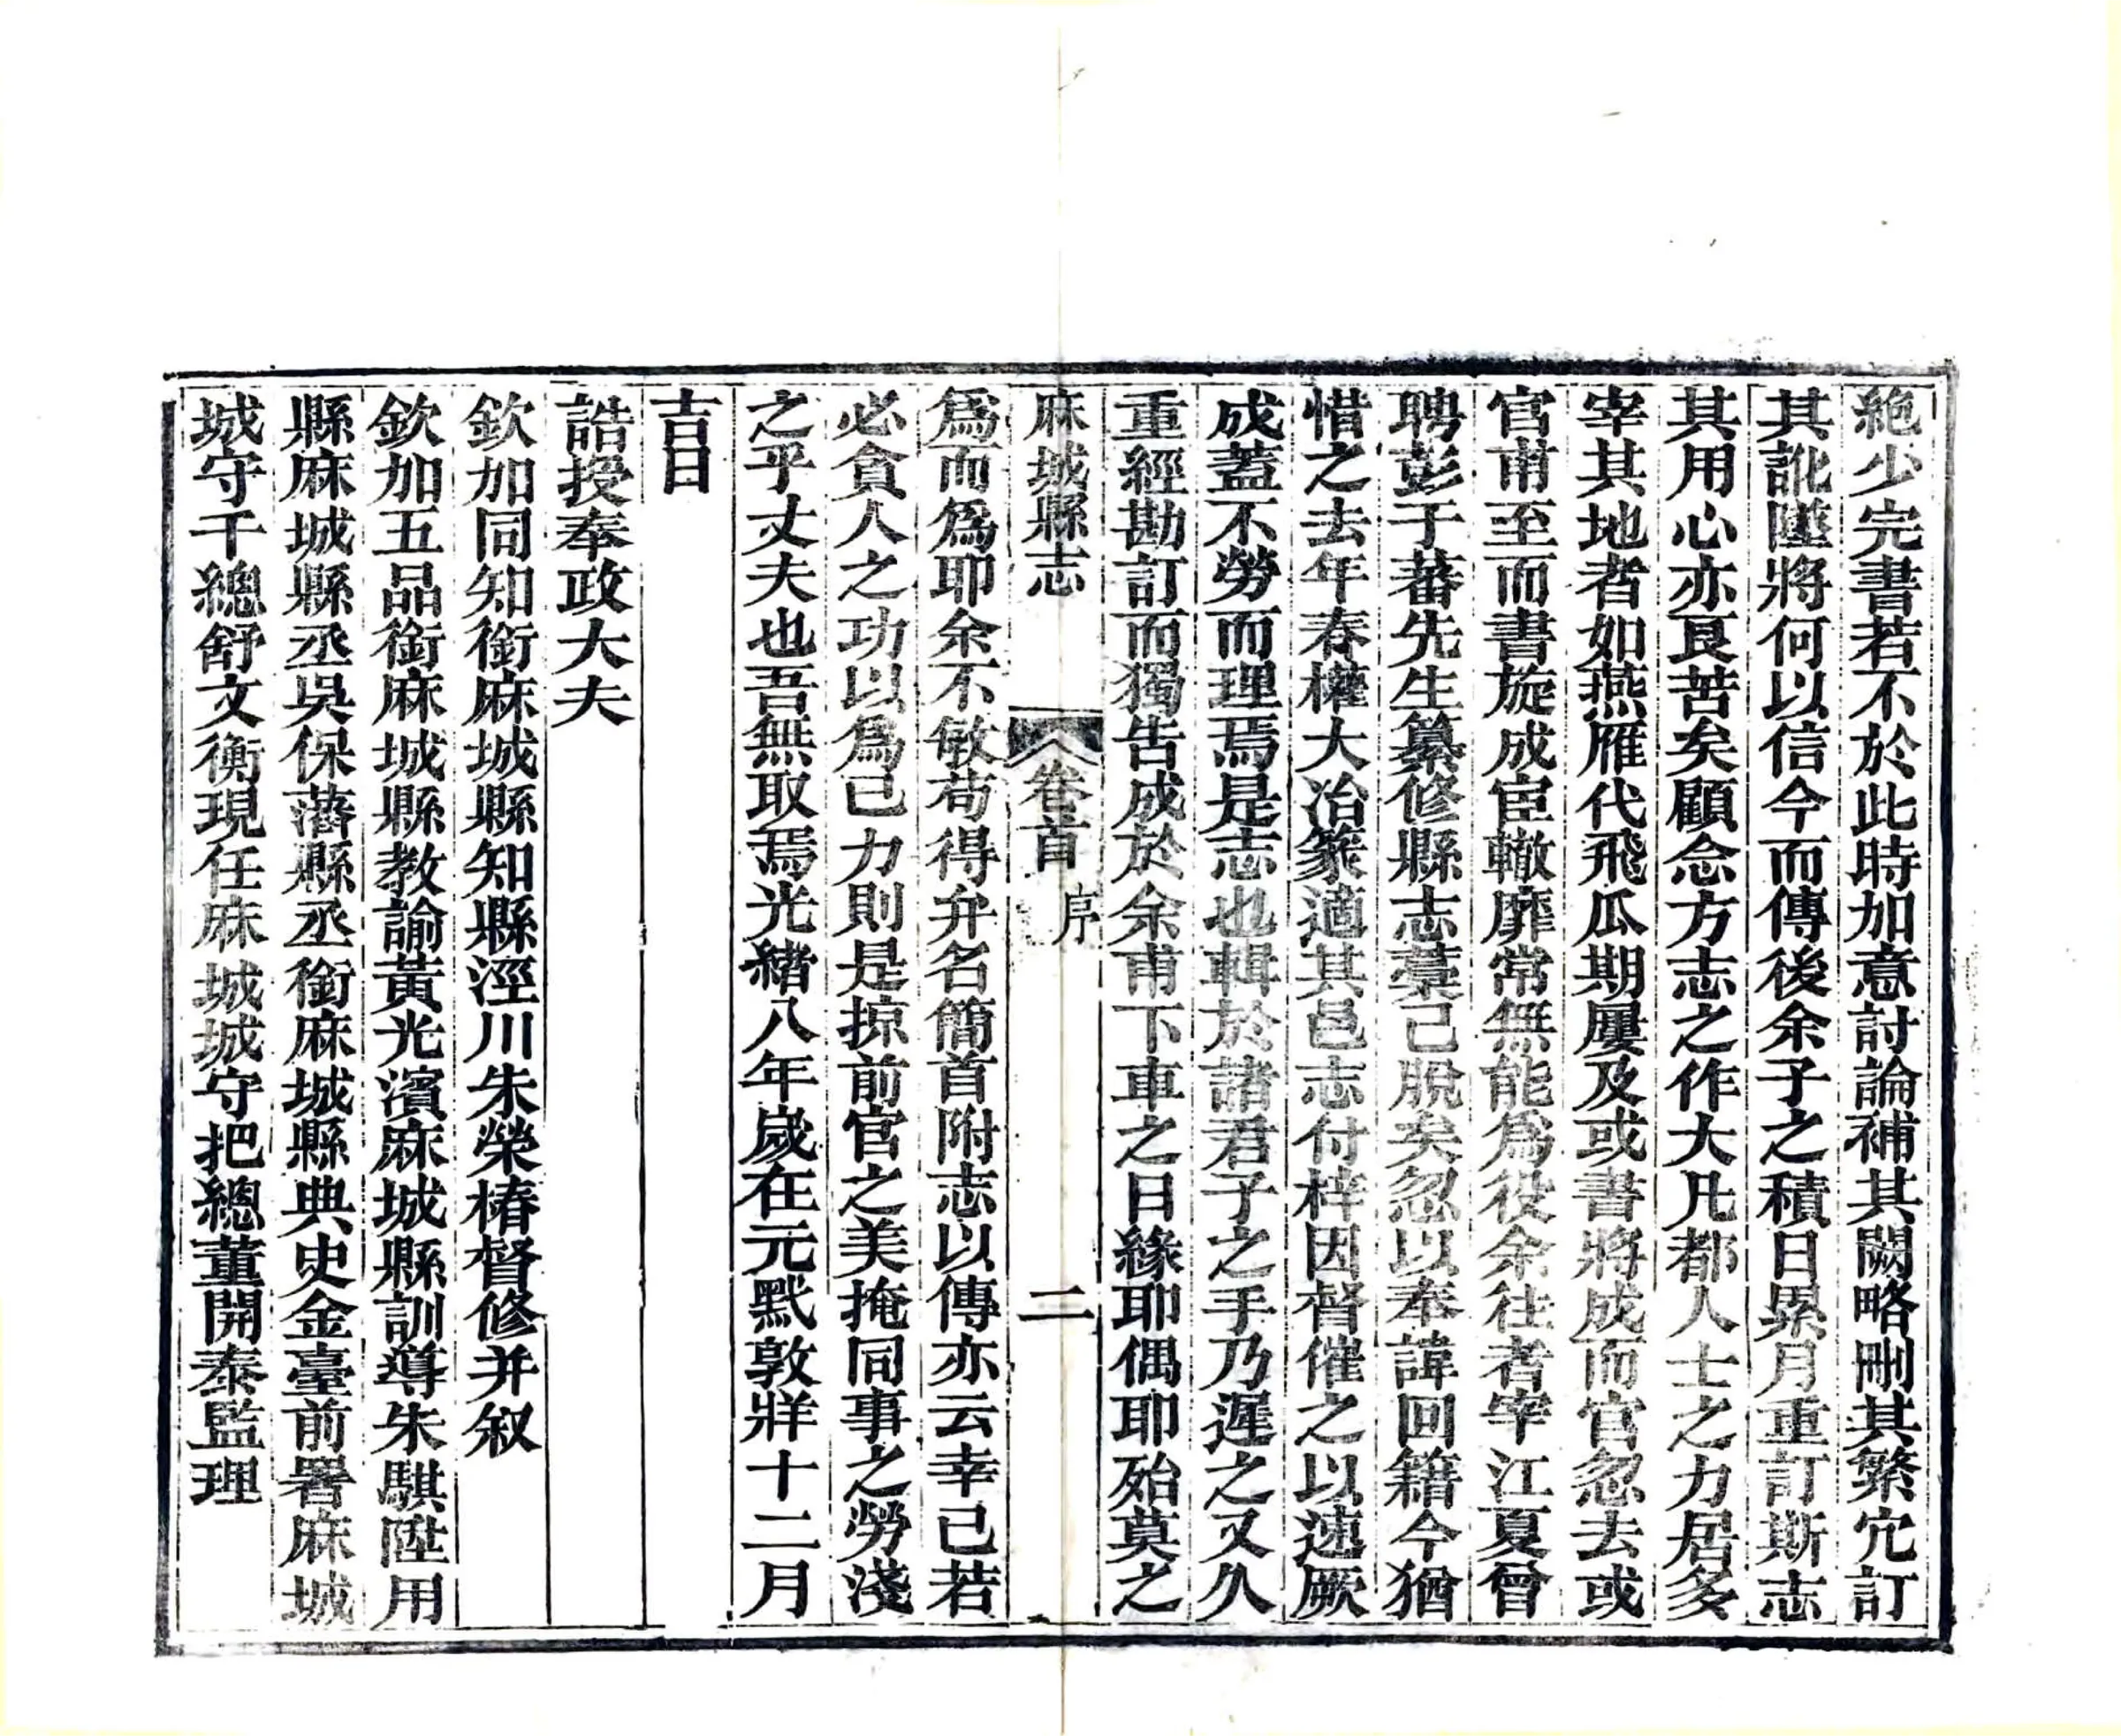 絶少完書若不於此時加意討論補其闕略刪其繁宂訂
其訛踳將何以信今而傳後余子之積日累月重訂斯志
其用心亦良苦矣顧念方志之作大凡都人士之力居多
宰其地者如燕雁代飛瓜期屢及或書將成而官忽去或
官甫至而書旋成宦轍靡常無能爲役余往者宰江夏曾
聘彭于蕃先生纂修縣志藁己脫矣忽以奉諱回籍今猶
惜之去年春權大冶篆適其邑志付梓因督催之以速厥
成蓋不勞而理焉是志也輯於諸君子之手乃遲之又久
重經勘訂而獨告成於余甫下車之日緣耶偶耶殆莫之
麻城縣志 卷首 序 二
爲而爲耶余不敏苟得弁名簡首附志以傳亦云幸已若
必貪人之功以爲己力則是掠前官之美掩同事之勞淺
之乎丈夫也吾無取焉光緒八年歲在元黓敦牂十二月
吉日
誥授奉政大夫
欽加同知銜麻城縣知縣涇川朱榮椿督修并叙
欽加五品銜麻城縣教諭黃光濱麻城縣訓導朱騏陞用
縣麻城縣丞吳保藩縣丞銜麻城縣典史金臺前署麻城
城守千總舒文衡現任麻城城守把總董開泰監理